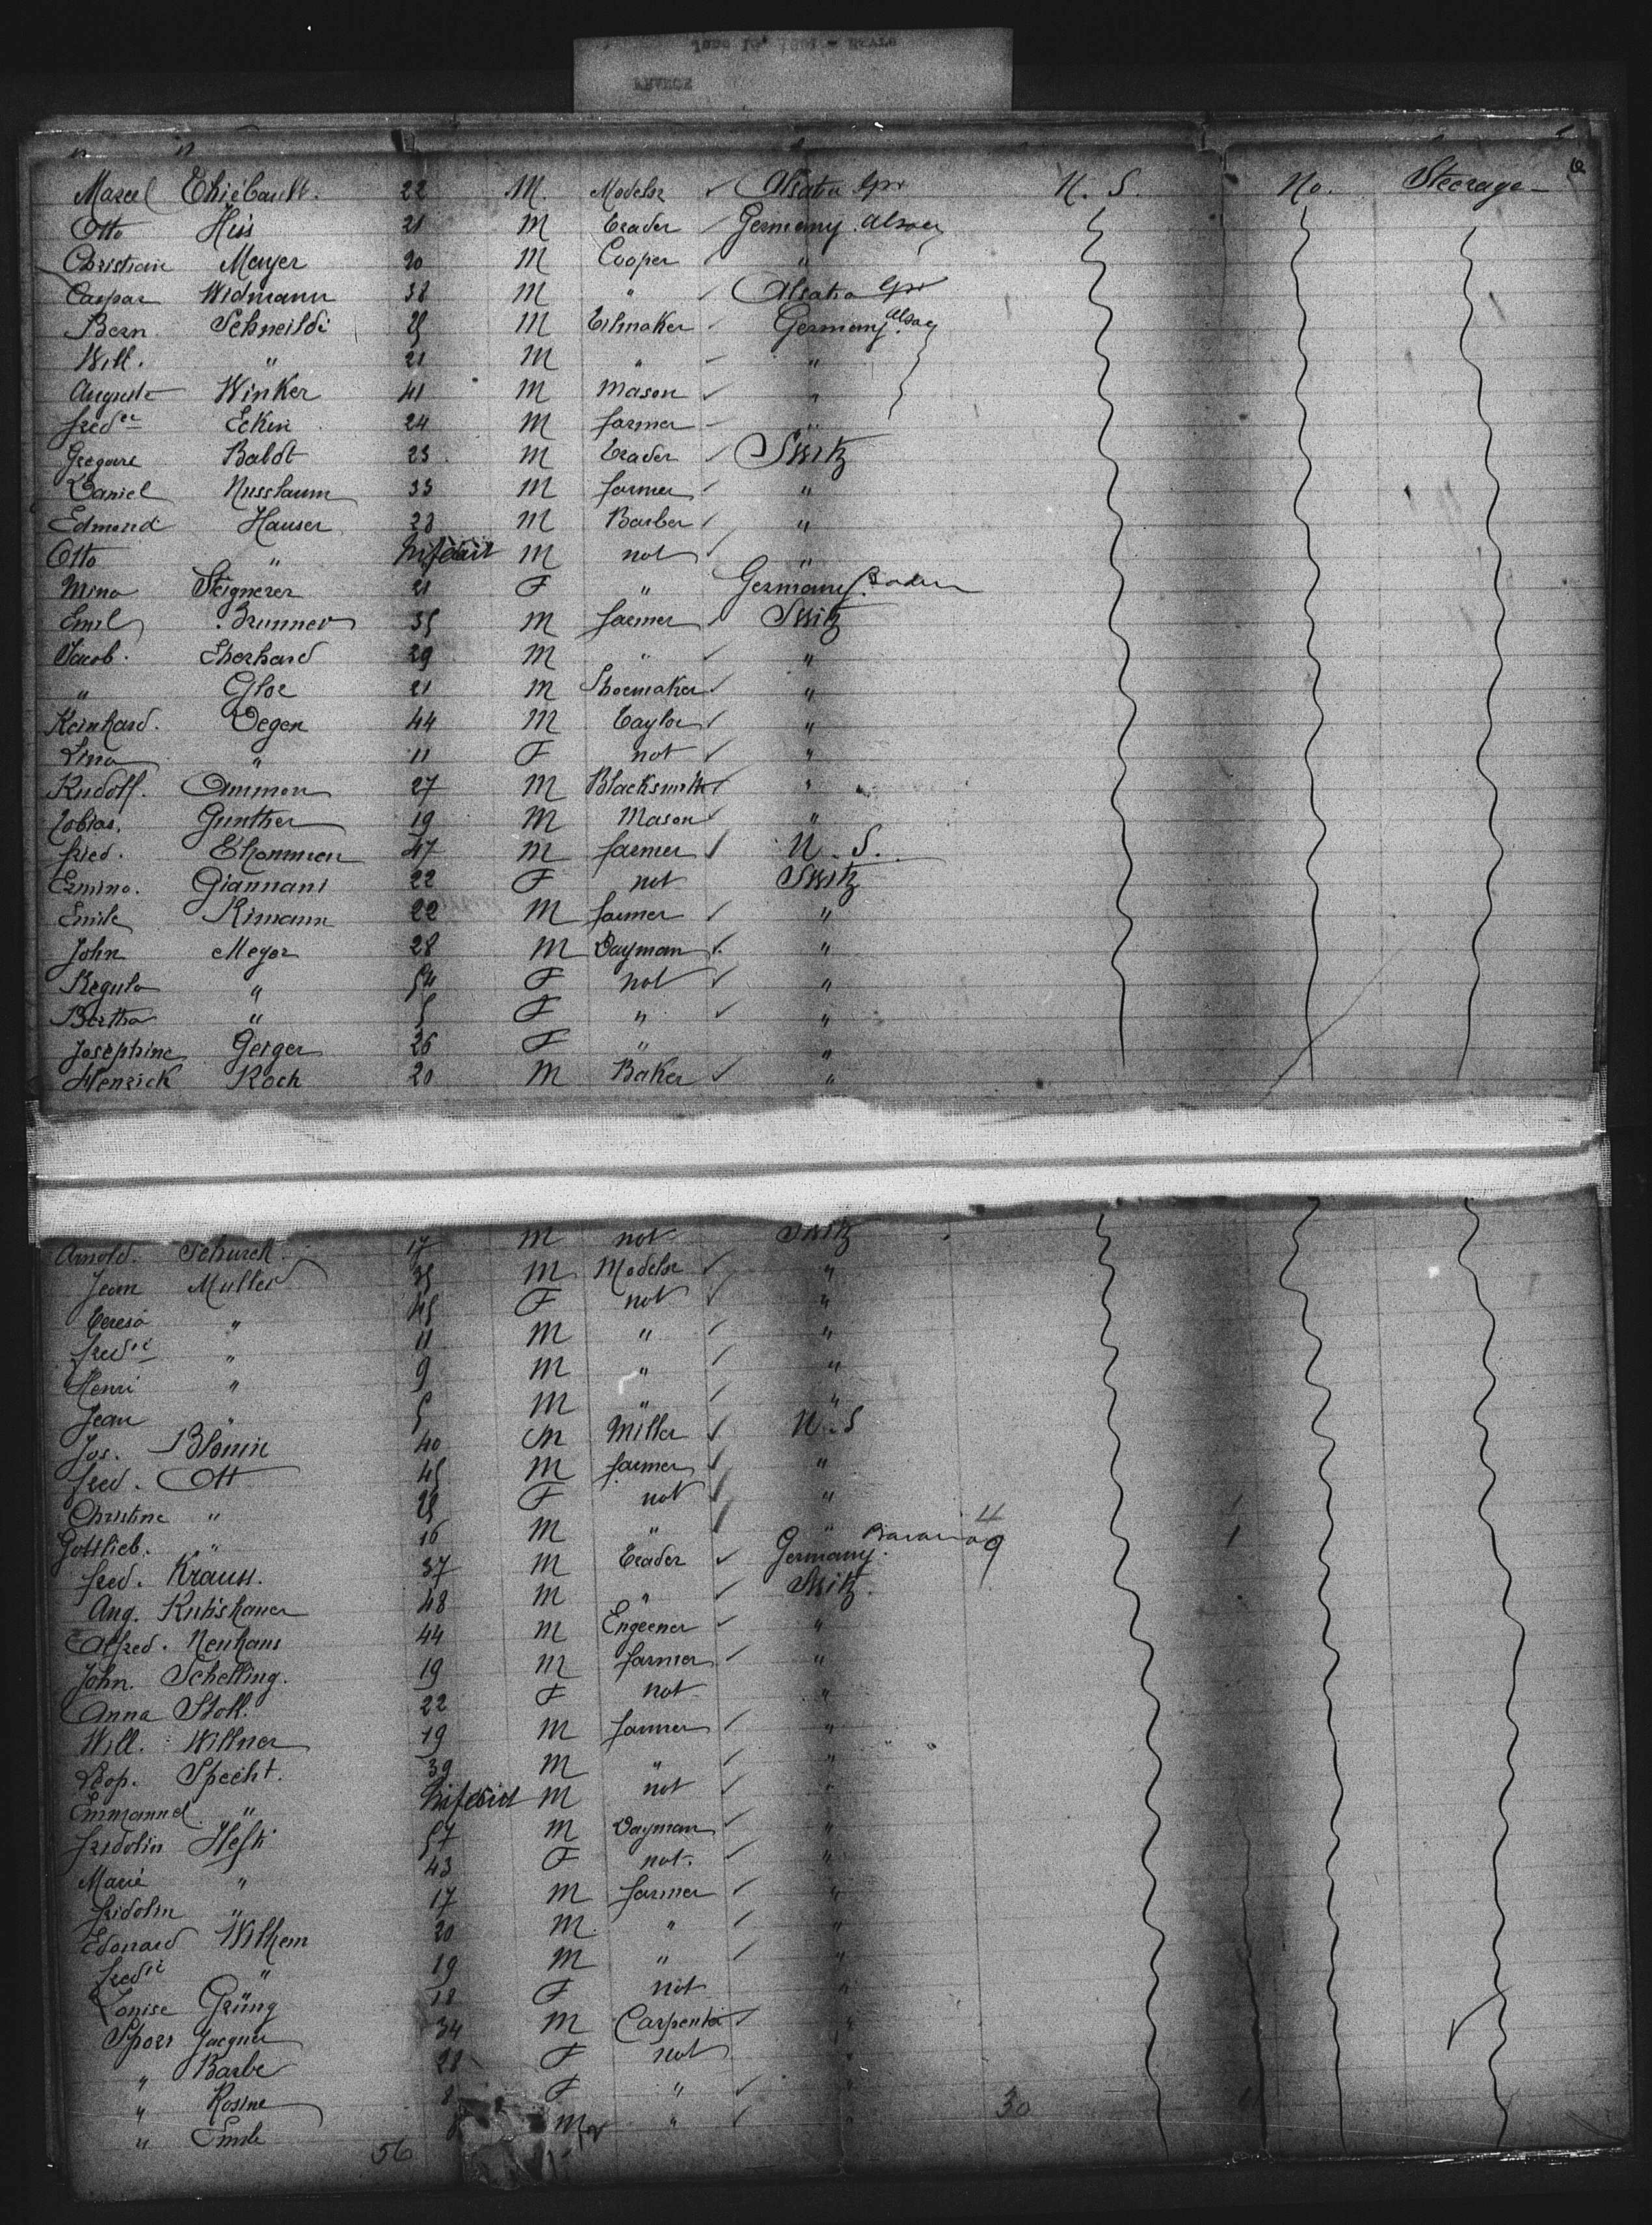 6
Marcel Thiébault. 22 M. Modeler ✓ Alsatia Gr U. S. No. Steerage
Otto Hiss 21 M Trader ✓ Germany. Alsace
Christian Meyer 20 M Cooper ✓ "
Caspar Widmann 38 M " ✓ Alsatia Gr
Bern. Schneildi 25 M Tilmaker ✓ Germany. Alsace
Will. " 21 M " "
Auguste Winker 41 M Mason ✓ "
Freder Eckin 24 M farmer "
Gregore Baldt 23 M Trader ✓ Switz
Daniel Nusslaum 33 M farmer ✓ "
Edmond Hauser 23 M Barber ✓ "
Otto " Infant M not ✓ "
Mina Steignerer 21 F " Germany. Baden
Emil Brunner 35 M farmer ✓ Switz
Jacob. Eberhard 29 M " ✓ "
" Glor 21 M Shoemaker ✓ "
Reinhard. Degen 44 M Taylor ✓ "
Lina " 11 F not ✓ "
Rudolf. Ammon 27 M Blacksmith ✓ "
Tobias. Gunther 19 M Mason ✓ "
Fred. Thommen 47 M farmer ✓ U. S.
Ermino. Giannani 22 F not Switz
Emile Rimann 22 M farmer ✓ "
John Meyer 28 M Dayman ✓ "
Regula " 54 F not ✓ "
Bertha " 5 F " ✓ "
Josephine Geiger 26 F " "
Henrick Koch 20 M Baker ✓ "
Arnold. Schurch. 17 M not Switz
Jean Muller 35 M Modeler ✓ "
Teresa " 45 F not ✓ "
Fredic " 11 M " ✓ "
Henri " 9 M " ✓ "
Jean " 5 M " ✓ "
Jos. Blonin 40 M Miller ✓ U. S
Fred. Ott 45 M farmer ✓ "
Christine " 25 F not ✓ "
Gottlieb. " 16 M " ✓ "
Fred. Krauss. 37 M Trader ✓ Germany. Bavaria
Aug. 48 M " ✓ Switz.
Alfred. Neuhaus 44 M Engeener ✓ "
John. Schelling. 19 M farmer ✓ "
Anna Stoll. 22 F not "
Will. Willner 19 M farmer ✓ "
Leop. Specht. 39 M " ✓ "
Emmanuel " Infant M not ✓ "
Fridolin Hefti 57 M Dayman ✓ "
Marie " 43 F not. ✓ "
Fridolin " 17 M farmer ✓ "
Edouard Wilhem 20 M. " ✓ "
Fredic " 19 M " ✓ "
Louise Grüng 18 F not "
Sporr Jacques 34 M Carpenter ✓ "
" Barbe 28 F not "
" Rosine 8 F " ✓ "
" Emile M " ✓ "
56 30